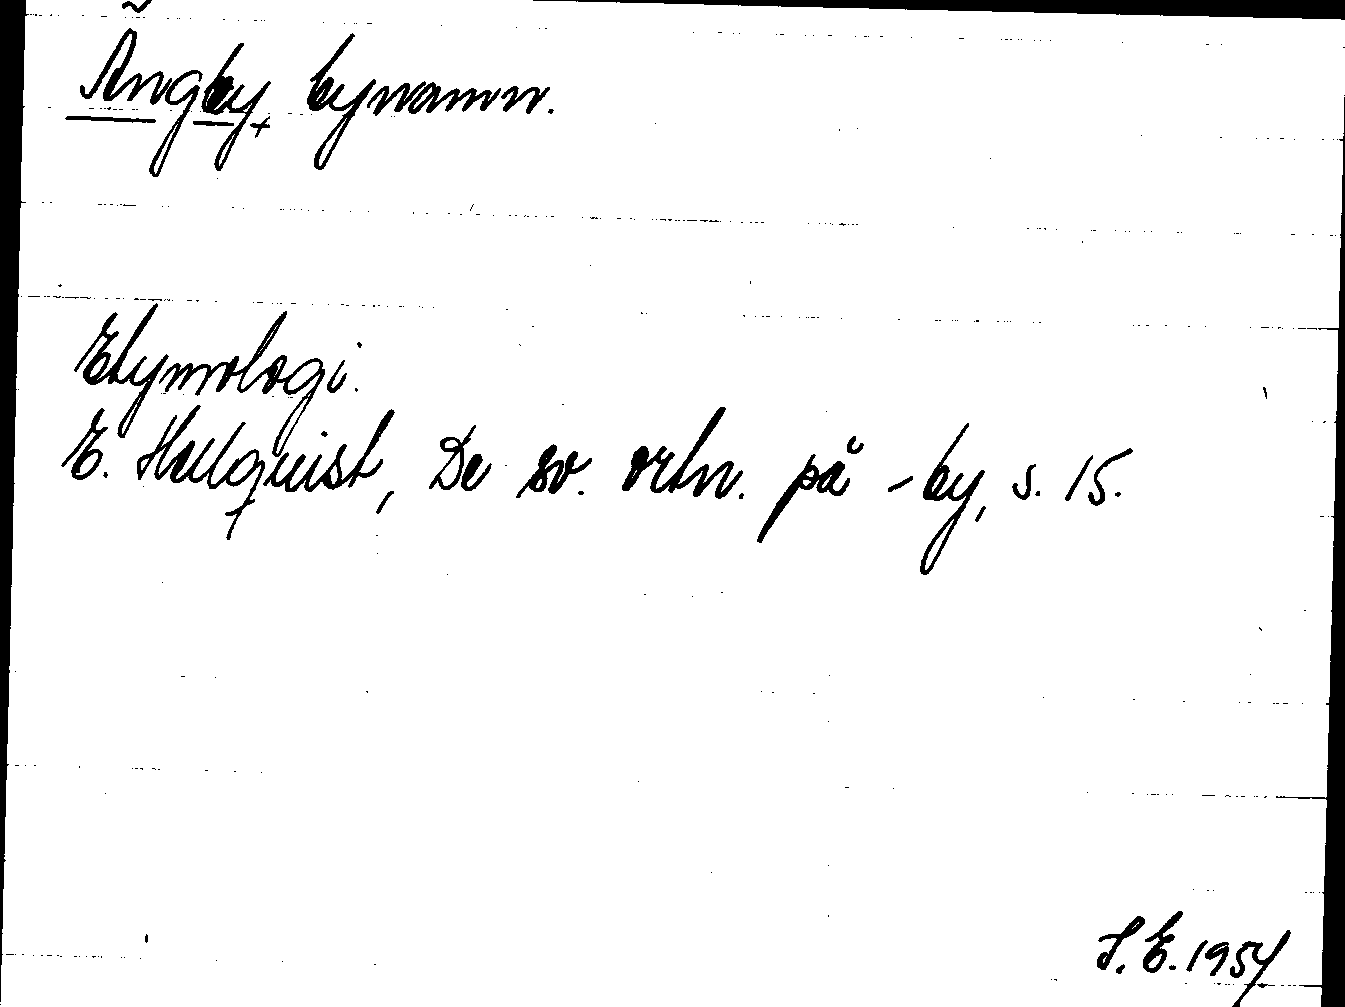 Ängby, bynamn.
Etymologi.
E. Hellquist, De sv. ortn. på -by, s. 15.
S. E. 1954